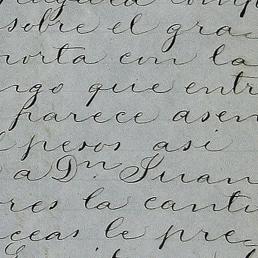 sobre el gra
orta con la
ngo que entr
parece asen
pesos asi
a Dn Juan
res la canti
ceas le pre